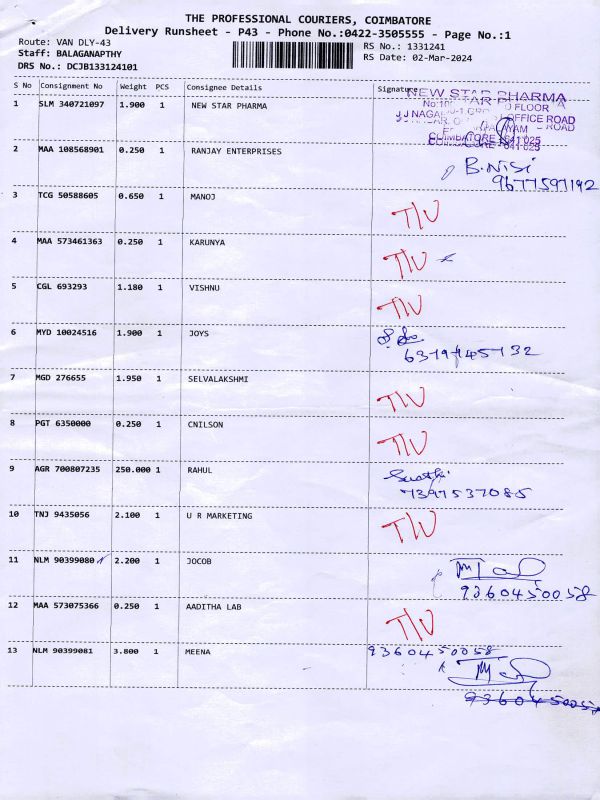 THE PROFESSIONAL COURIERS, COIMBATORE
Delivery Runsheet - P43 - Phone No.:0422-3505555 - Page No.:1
Route: VAN DLY-43
RS No.: 1331241
Staff: BALAGANAPTHY
RS Date: 02-Mar-2024
DRS No.: DCJB133124101
S No Consignment No Weight PCS Consignee Details Signature
1 SLM 340721097 1.900 1 NEW STAR PHARMA
NEW STAR PHARMA
FLOOR
OFFICE ROAD
COIMBATORE 641 025
2 MAA 108568901 0.250 1 RANJAY ENTERPRISES
B.Nisi
9677597192
3 TCG 50588605 0.650 1 MANOJ T/U
4 MAA 573461363 0.250 1 KARUNYA T/U
5 CGL 693293 1.180 1 VISHNU T/U
6 MYD 10024516 1.900 1 JOYS
7 MGD 276655 1.950 1 SELVALAKSHMI T/U
8 PGT 6350000 0.250 1 CNILSON T/U
9 AGR 700807235 250.000 1 RAHUL
7397537085
10 TNJ 9435056 2.100 1 U R MARKETING T/U
11 NLM 90399080 2.200 1 JOCOB
9360450058
12 MAA 573075366 0.250 1 AADITHA LAB T/U
13 NLM 90399081 3.800 1 MEENA 9360450058
9360450058